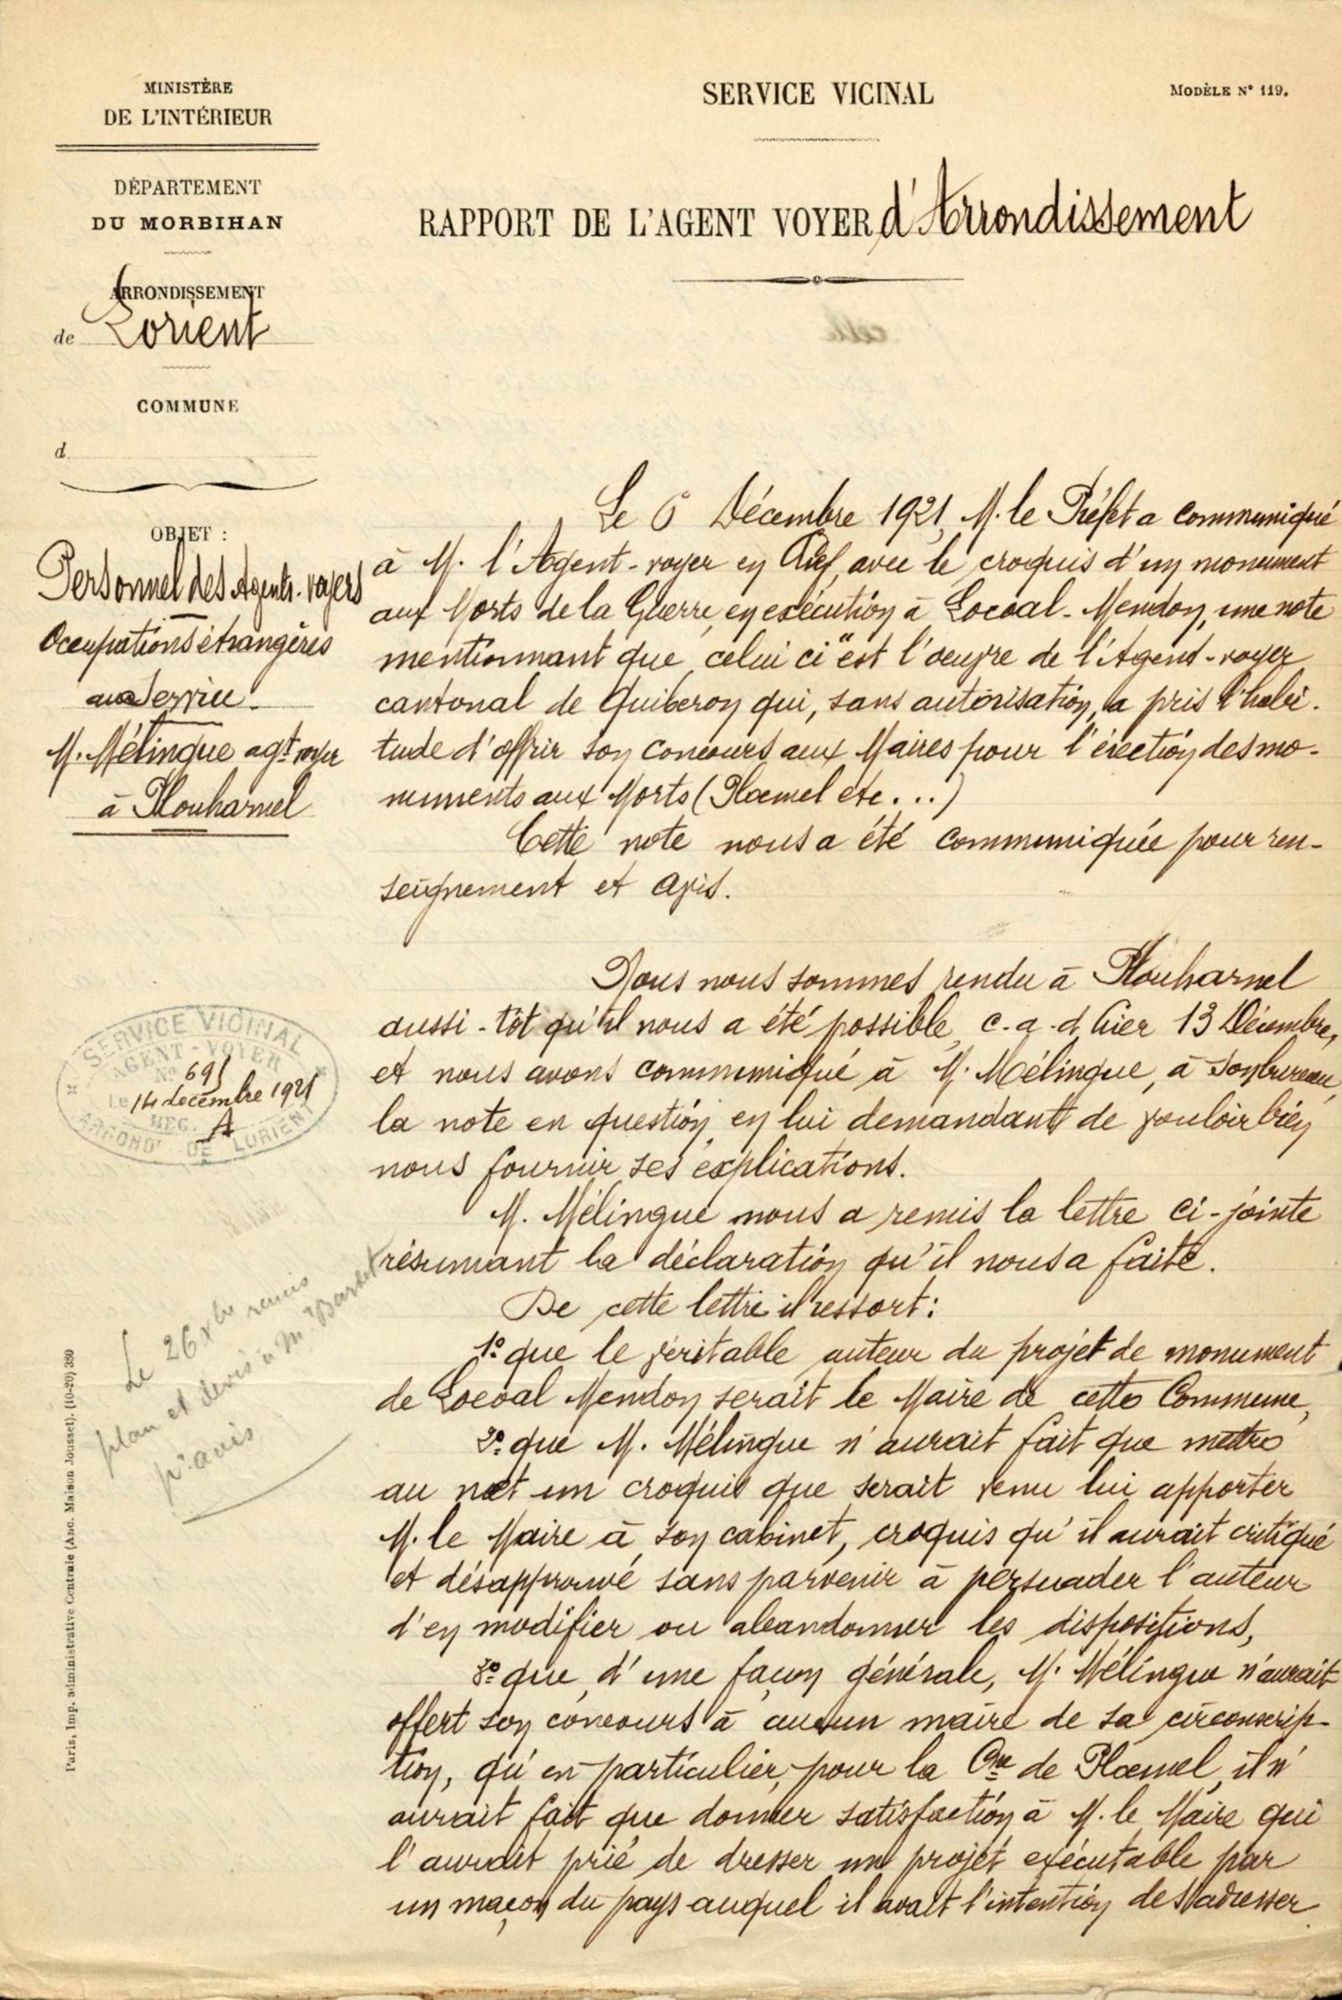 MINISTÈRE
DE L'INTÉRIEUR
DÉPARTEMENT
DU MORBIHAN
ARRONDISSEMENT
de Lorient
COMMUNE
d
OBJET :
Personnel des Agents-voyers
Occupations étrangères
au Service.
M. Mélingue agt voyer
à Plouharnel
SERVICE VICINAL
AGENT-VOYER
N° 691
Le 14 décembre 1921
REG. A
ARROND' DE LORIENT
Le 26 Xbre remis
plan et devis à Mr Bardet
pr avis
Paris, Imp. administrative Centrale (Anc. Maison Jousset). (10-20) 380
SERVICE VICINAL
MODÈLE N° 119.
RAPPORT DE L'AGENT VOYER d'Arrondissement
Le 6 Décembre 1921, M. le Préfet a communiqué
à M. l'Agent-voyer en Chef, avec le croquis d'un monument
aux Morts de la Guerre, en exécution à Locoal-Mendon, une note
mentionnant que celui ci "est l'oeuvre de l'Agent-voyer
cantonal de Quiberon qui, sans autorisation, a pris l'habi-
tude d'offrir son concours aux Maires pour l'érection des mo-
numents aux Morts (Ploemel etc...)
Cette note nous a été communiquée pour ren-
seignement et avis.
Nous nous sommes rendu à Plouharnel
aussi-tôt qu'il nous a été possible, c.a.d. hier 13 Décembre,
et nous avons communiqué à M. Mélingue, à son bureau,
la note en question, en lui demandant de vouloir bien
nous fournir ses explications.
M. Mélingue nous a remis la lettre ci-jointe
résumant la déclaration qu'il nous a faite.
De cette lettre il ressort:
1° que le véritable auteur du projet de monument
de Locoal Mendon serait le Maire de cette Commune,
2° que M. Mélingue n'aurait fait que mettre
au net un croquis que serait venu lui apporter
M. le Maire à son cabinet, croquis qu'il aurait critiqué
et désapprouvé sans parvenir à persuader l'auteur
d'en modifier ou abandonner les dispositions,
3° que, d'une façon générale, M. Mélingue n'aurait
offert son concours à aucun maire de sa circonscrip-
tion, qu'en particulier, pour la Cne de Ploemel, il n'
aurait fait que donner satisfaction à M. le Maire qui
l'aurait prié de dresser un projet exécutable par
un maçon du pays auquel il avait l'intention de s'adresser